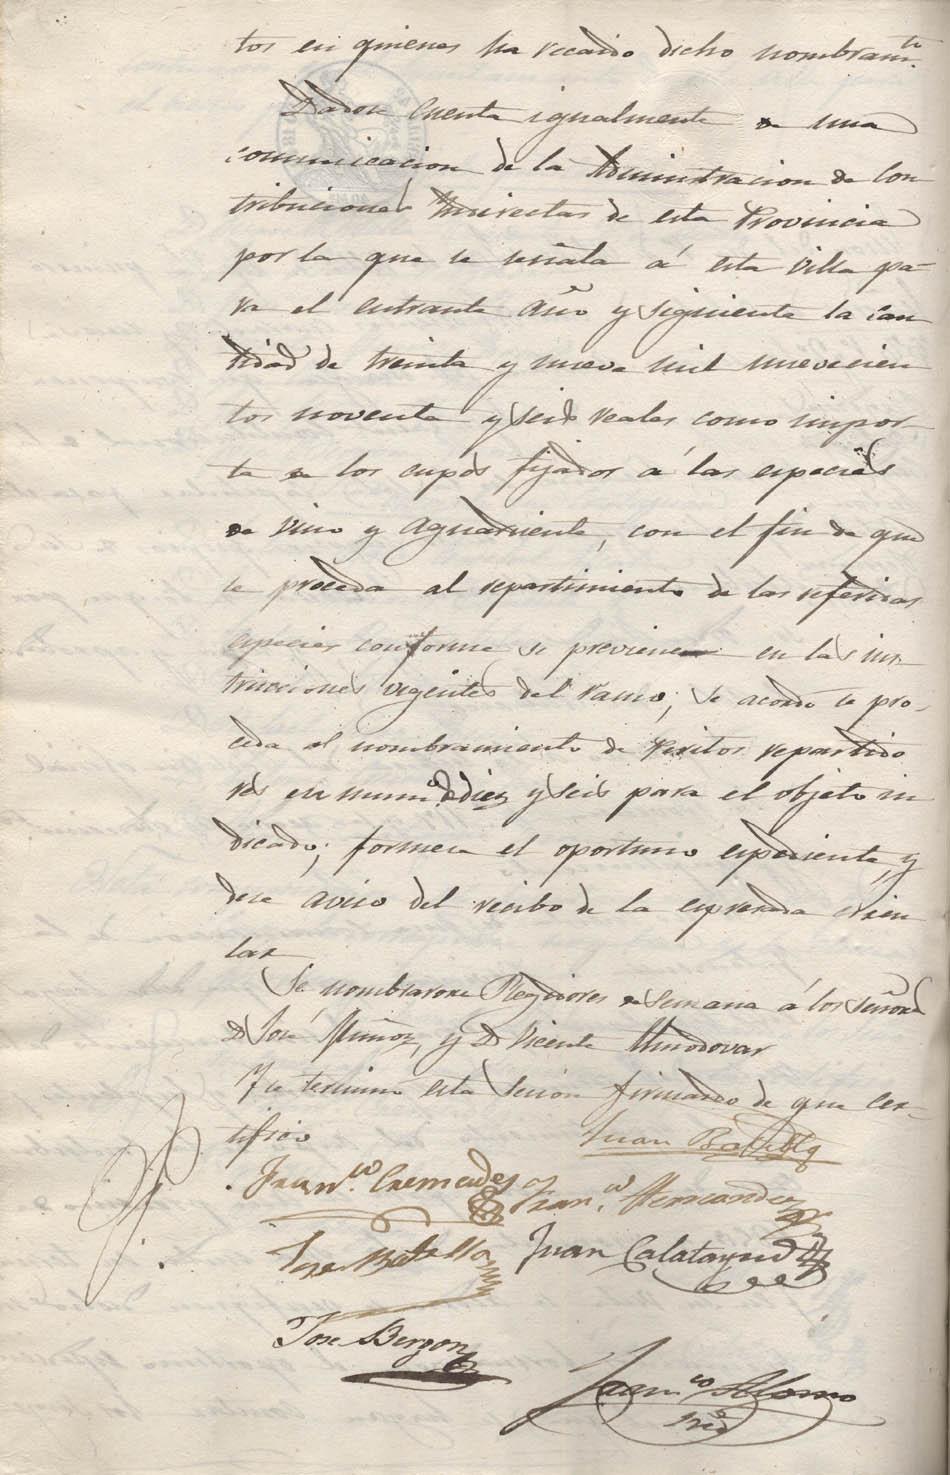 tos en quienes ha recaido dicho nombramto.
Dadose cuenta igualmente de una
comunicacion de la Administracion de Con
tribuciones Indirectas de esta Provincia
por la que se señala á esta villa pa-
ra el entrante año y siguiente la can
tidad de treinta y nueve mil novecien
tos noventa y seis reales como impor-
te de los cupos fijados á las especies
de vino y aguardiente, con el fin de que
se proceda al repartimiento de las referidas
especies conforme se previene en las ins-
trucciones vigentes del ramo; se acordó se pro-
ceda al nombramiento de peritos repartido
res en numo. de diez y seis para el objeto in
dicado; formese el oportuno espediente, y
dese aviso del recibo de la espresada circu
lar
Se nombraron Regidores de semana á los Señores
D. José Muñoz, y D. Vicente Almodovar
Y se termino esta sesion firmando de que cer-
tifico
Juan Botella
Franco. Cremades Franco. Hernandez
Jose Botella Juan Calatayud
Jose Berzon
Franco. Alonso